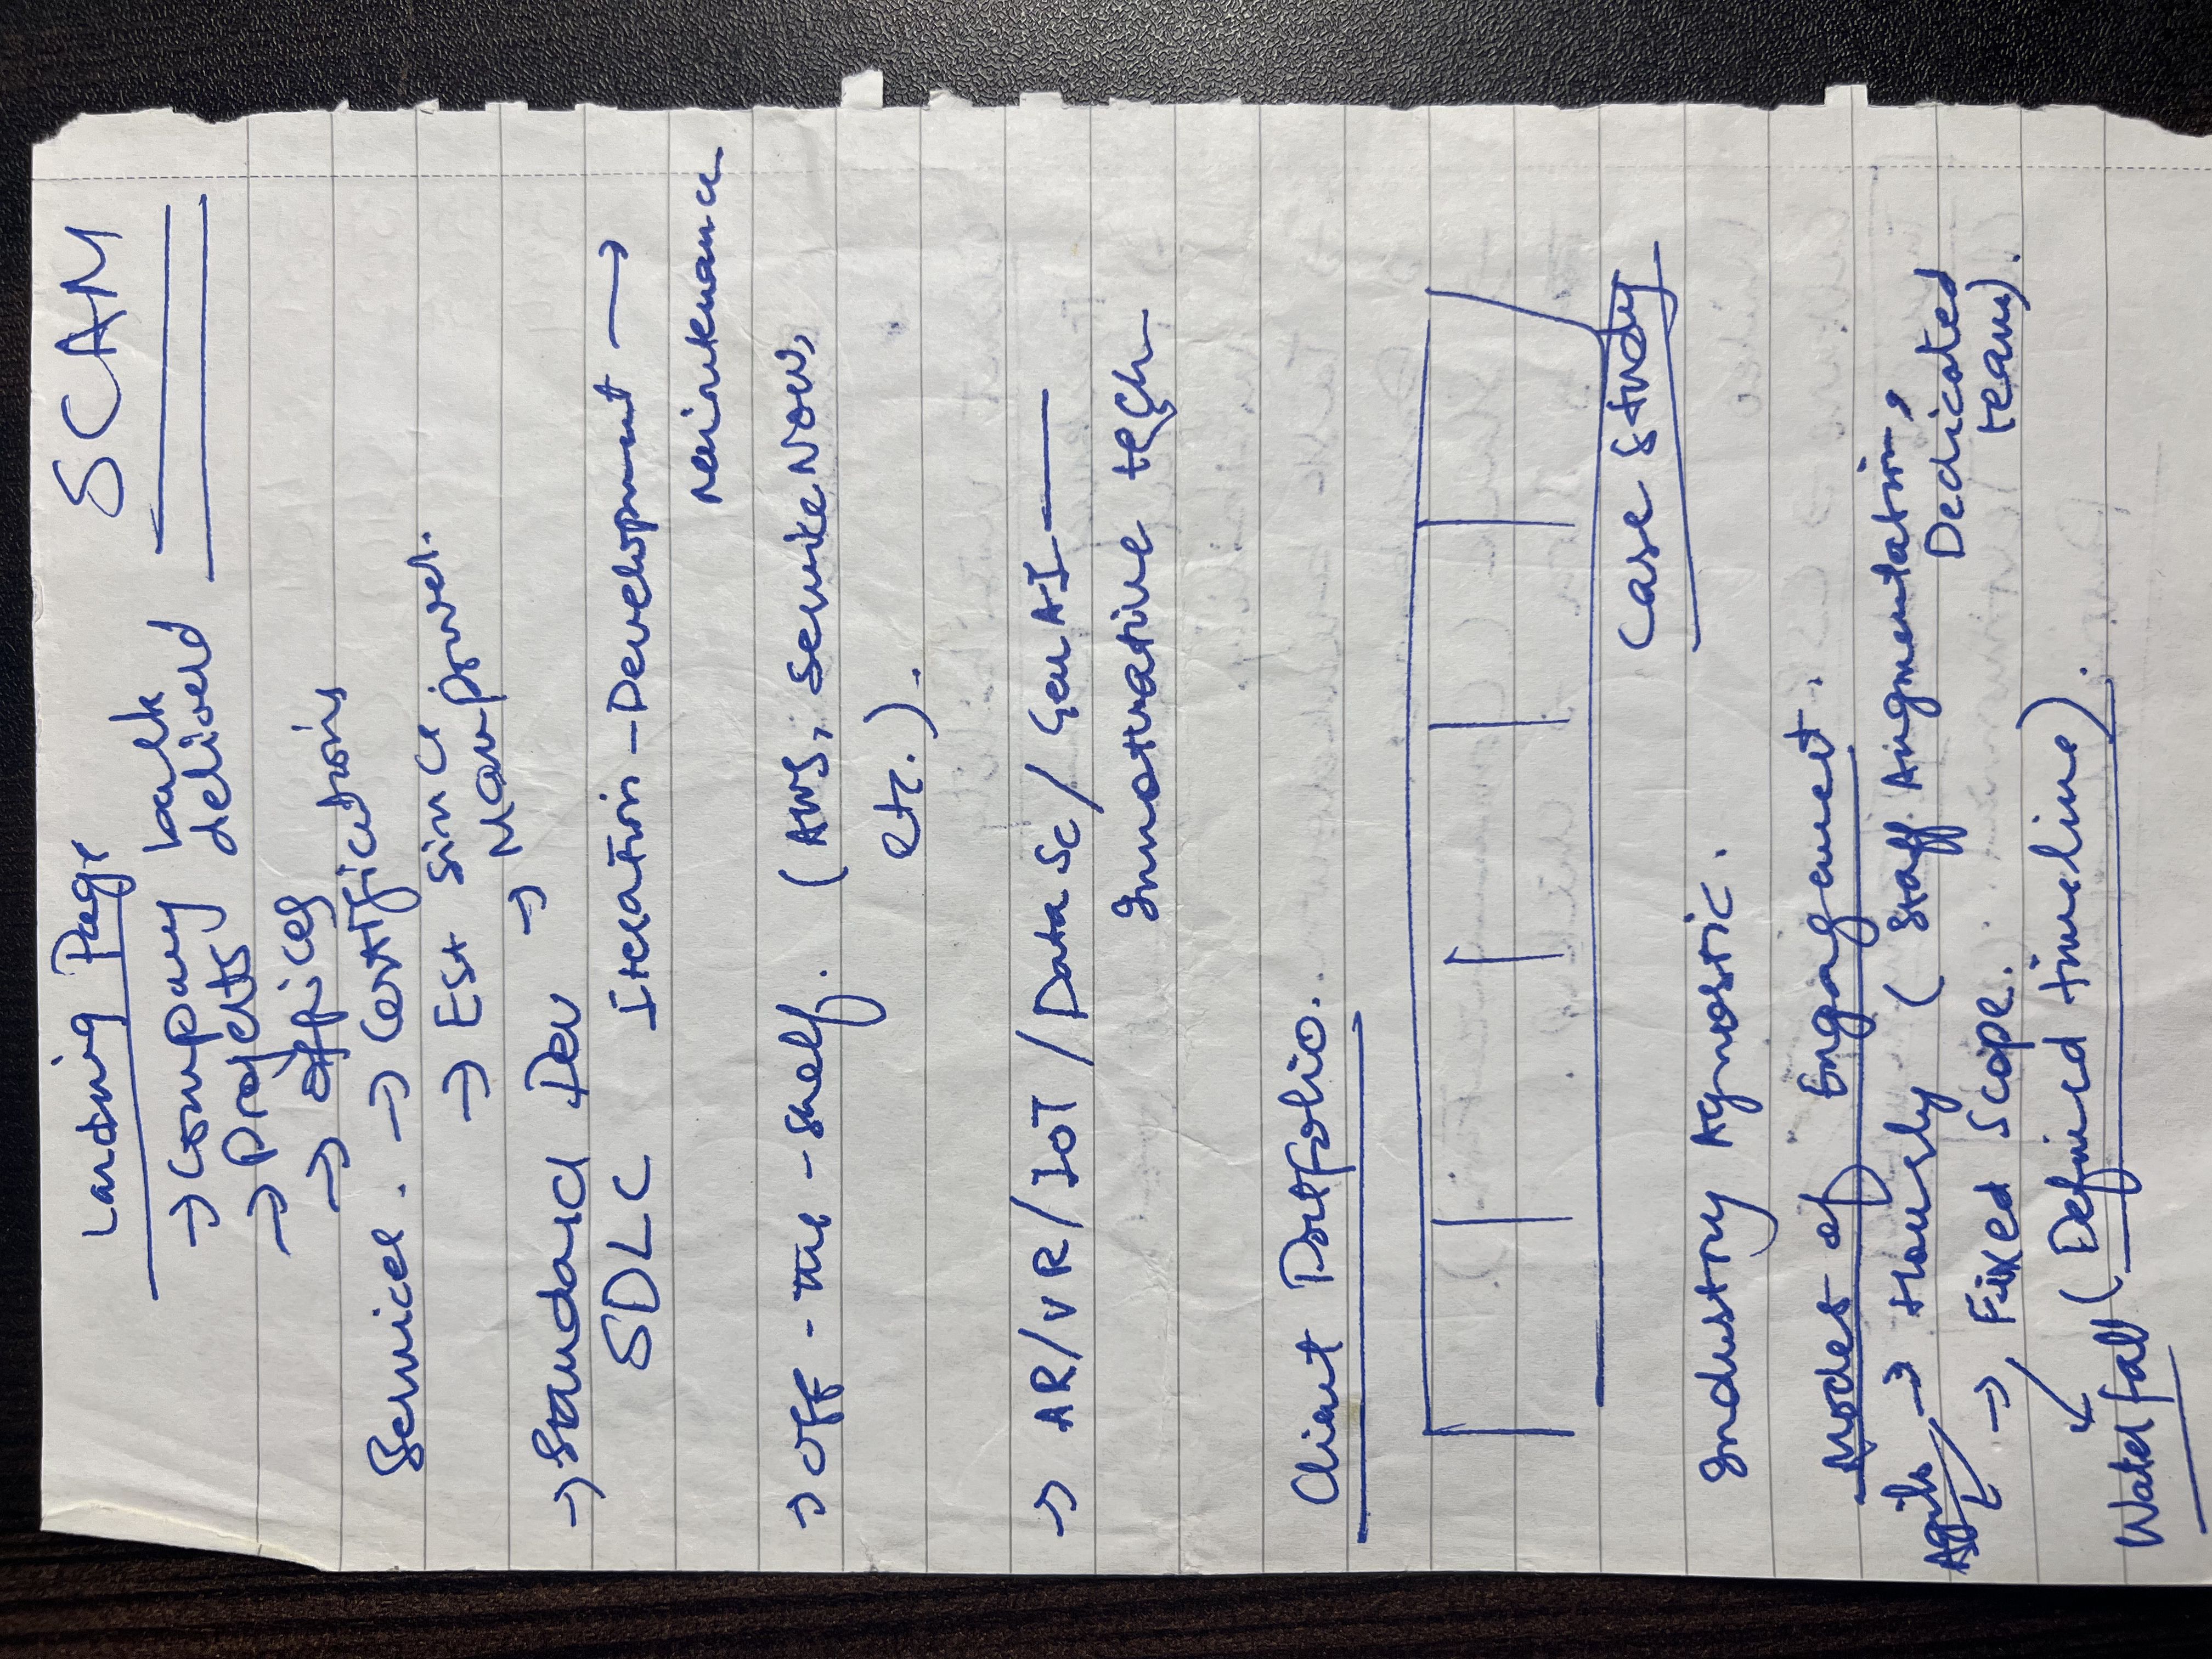 Landing Page SCAM
→ Company
→ Projects delivered
→ offices
→ Certifications
Services. → Est since
→ Manpower.
→ Standard Dev
SDLC Iteration - Development →
Maintenance
→ Off-the-shelf. (AWS, ServiceNow,
etc.).
→ AR/VR/IOT/Data Sc/GenAI —
Innovative tech
Client Portfolio.
Case Study
Industry Agnostic.
Modes of Engagement.
Agile → Hourly (Staff Augmentation,
Dedicated
team).
→ Fixed Scope.
(Defined timeline).
Waterfall